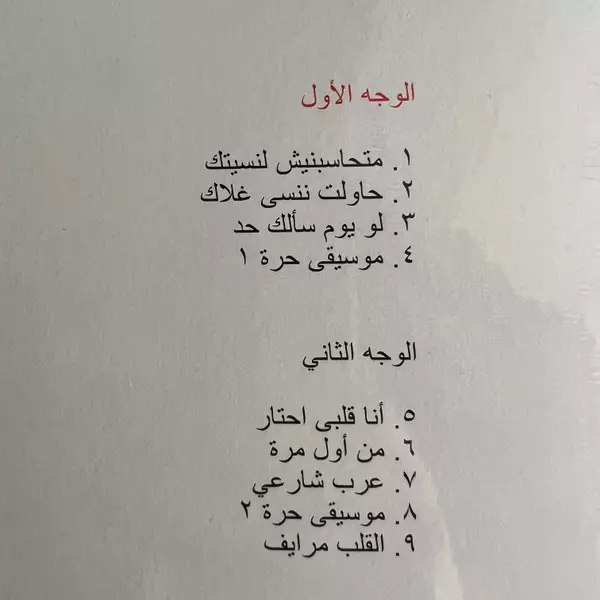 الوجه الأول
١. متحاسبنيش لنسيتك
٢. حاولت ننسى غلاك
٣. لو يوم سألك حد
٤. موسيقى حرة ١
الوجه الثاني
٥. أنا قلبى احتار
٦. من أول مرة
٧. عرب شارعي
٨. موسيقى حرة ٢
٩. القلب مرايف